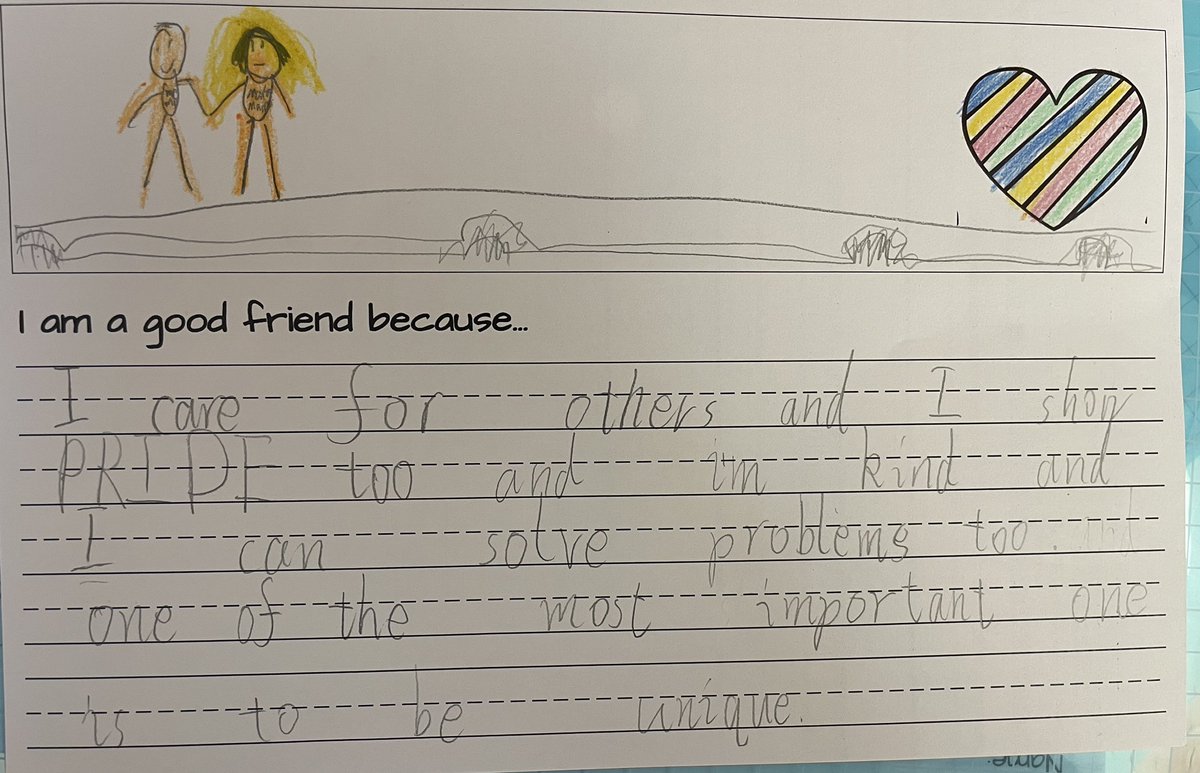 I am a good friend because...
I care for others and I show
PRIDE too and i'm kind and
I can solve problems too.
one of the most important one
is to be unique.
Name: